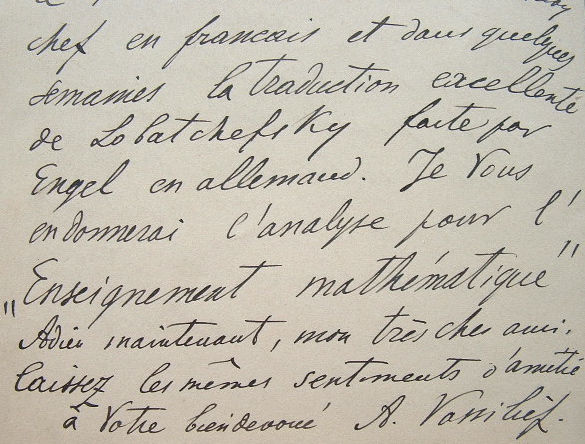 chef en francais et dans quelques
semaines la traduction excellente
de Lobatchefsky faite par
Engel en allemand. Je Vous
en donnerai l'analyse pour l'
„Enseignement mathématique"
Adieu maintenant, mon très cher ami.
laissez les mêmes sentiments d'amitié
à Votre bien devoué A. Vassilief.